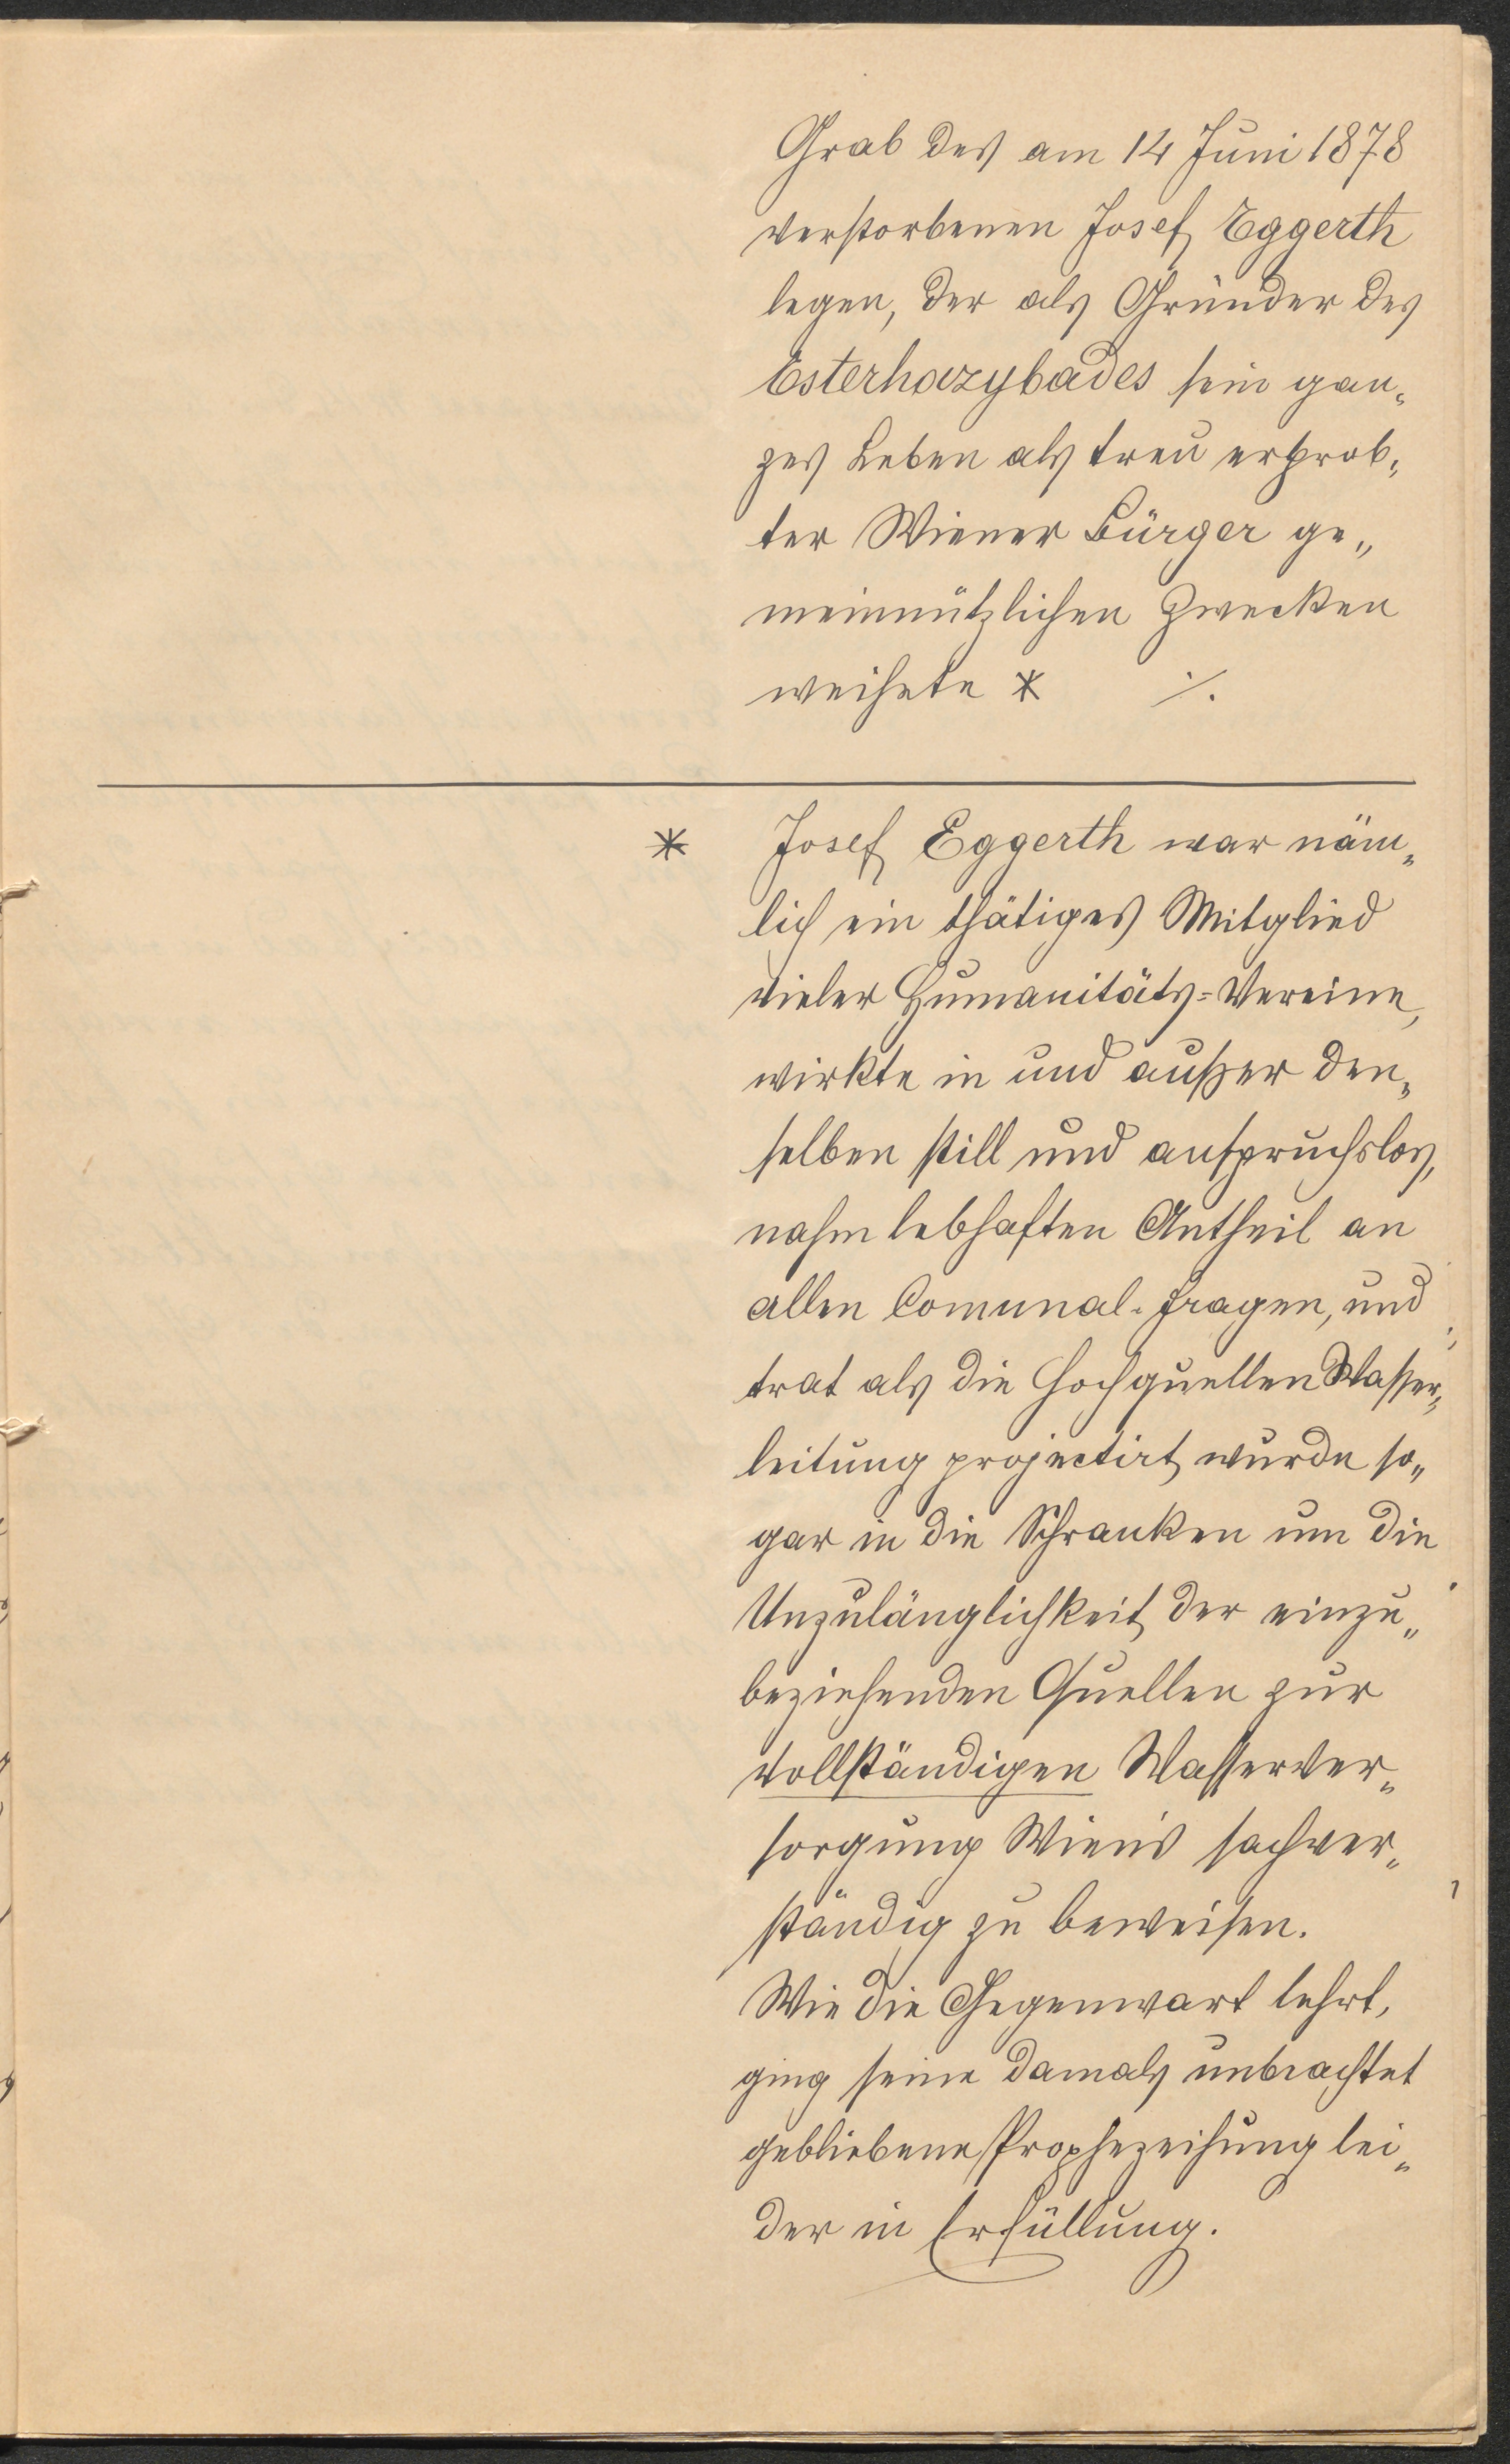 Grab des am 14 Juni 1878
verstorbenen Josef Eggerth
legen, der als Gründer des
Esterhazybades sein gan„
zes Leben als treu erprob„
ter Wiener Bürger ge„
meinnützlichen Zwecken
weihete * ·/.
* Josef Eggerth war näm„
lich ein thätiges Mitglied
vieler Humanitäts=Vereine,
wirkte in und außer den„
selben still und anspruchslos,
nahm lebhaften Antheil an
allen Comunal-Fragen, und
trat als die Hochquellen Wasser„
leitung projectirt wurde so„
gar in die Schranken um die
Unzulänglichkeit der einzu„
beziehenden Quellen zur
vollständigen Wasserver„
sorgung Wien's sachver„
ständig zu beweisen.
Wie die Gegenwart lehrt,
ging seine damals unbeachtet
gebliebene Prophezeihung lei„
der in Erfüllung.